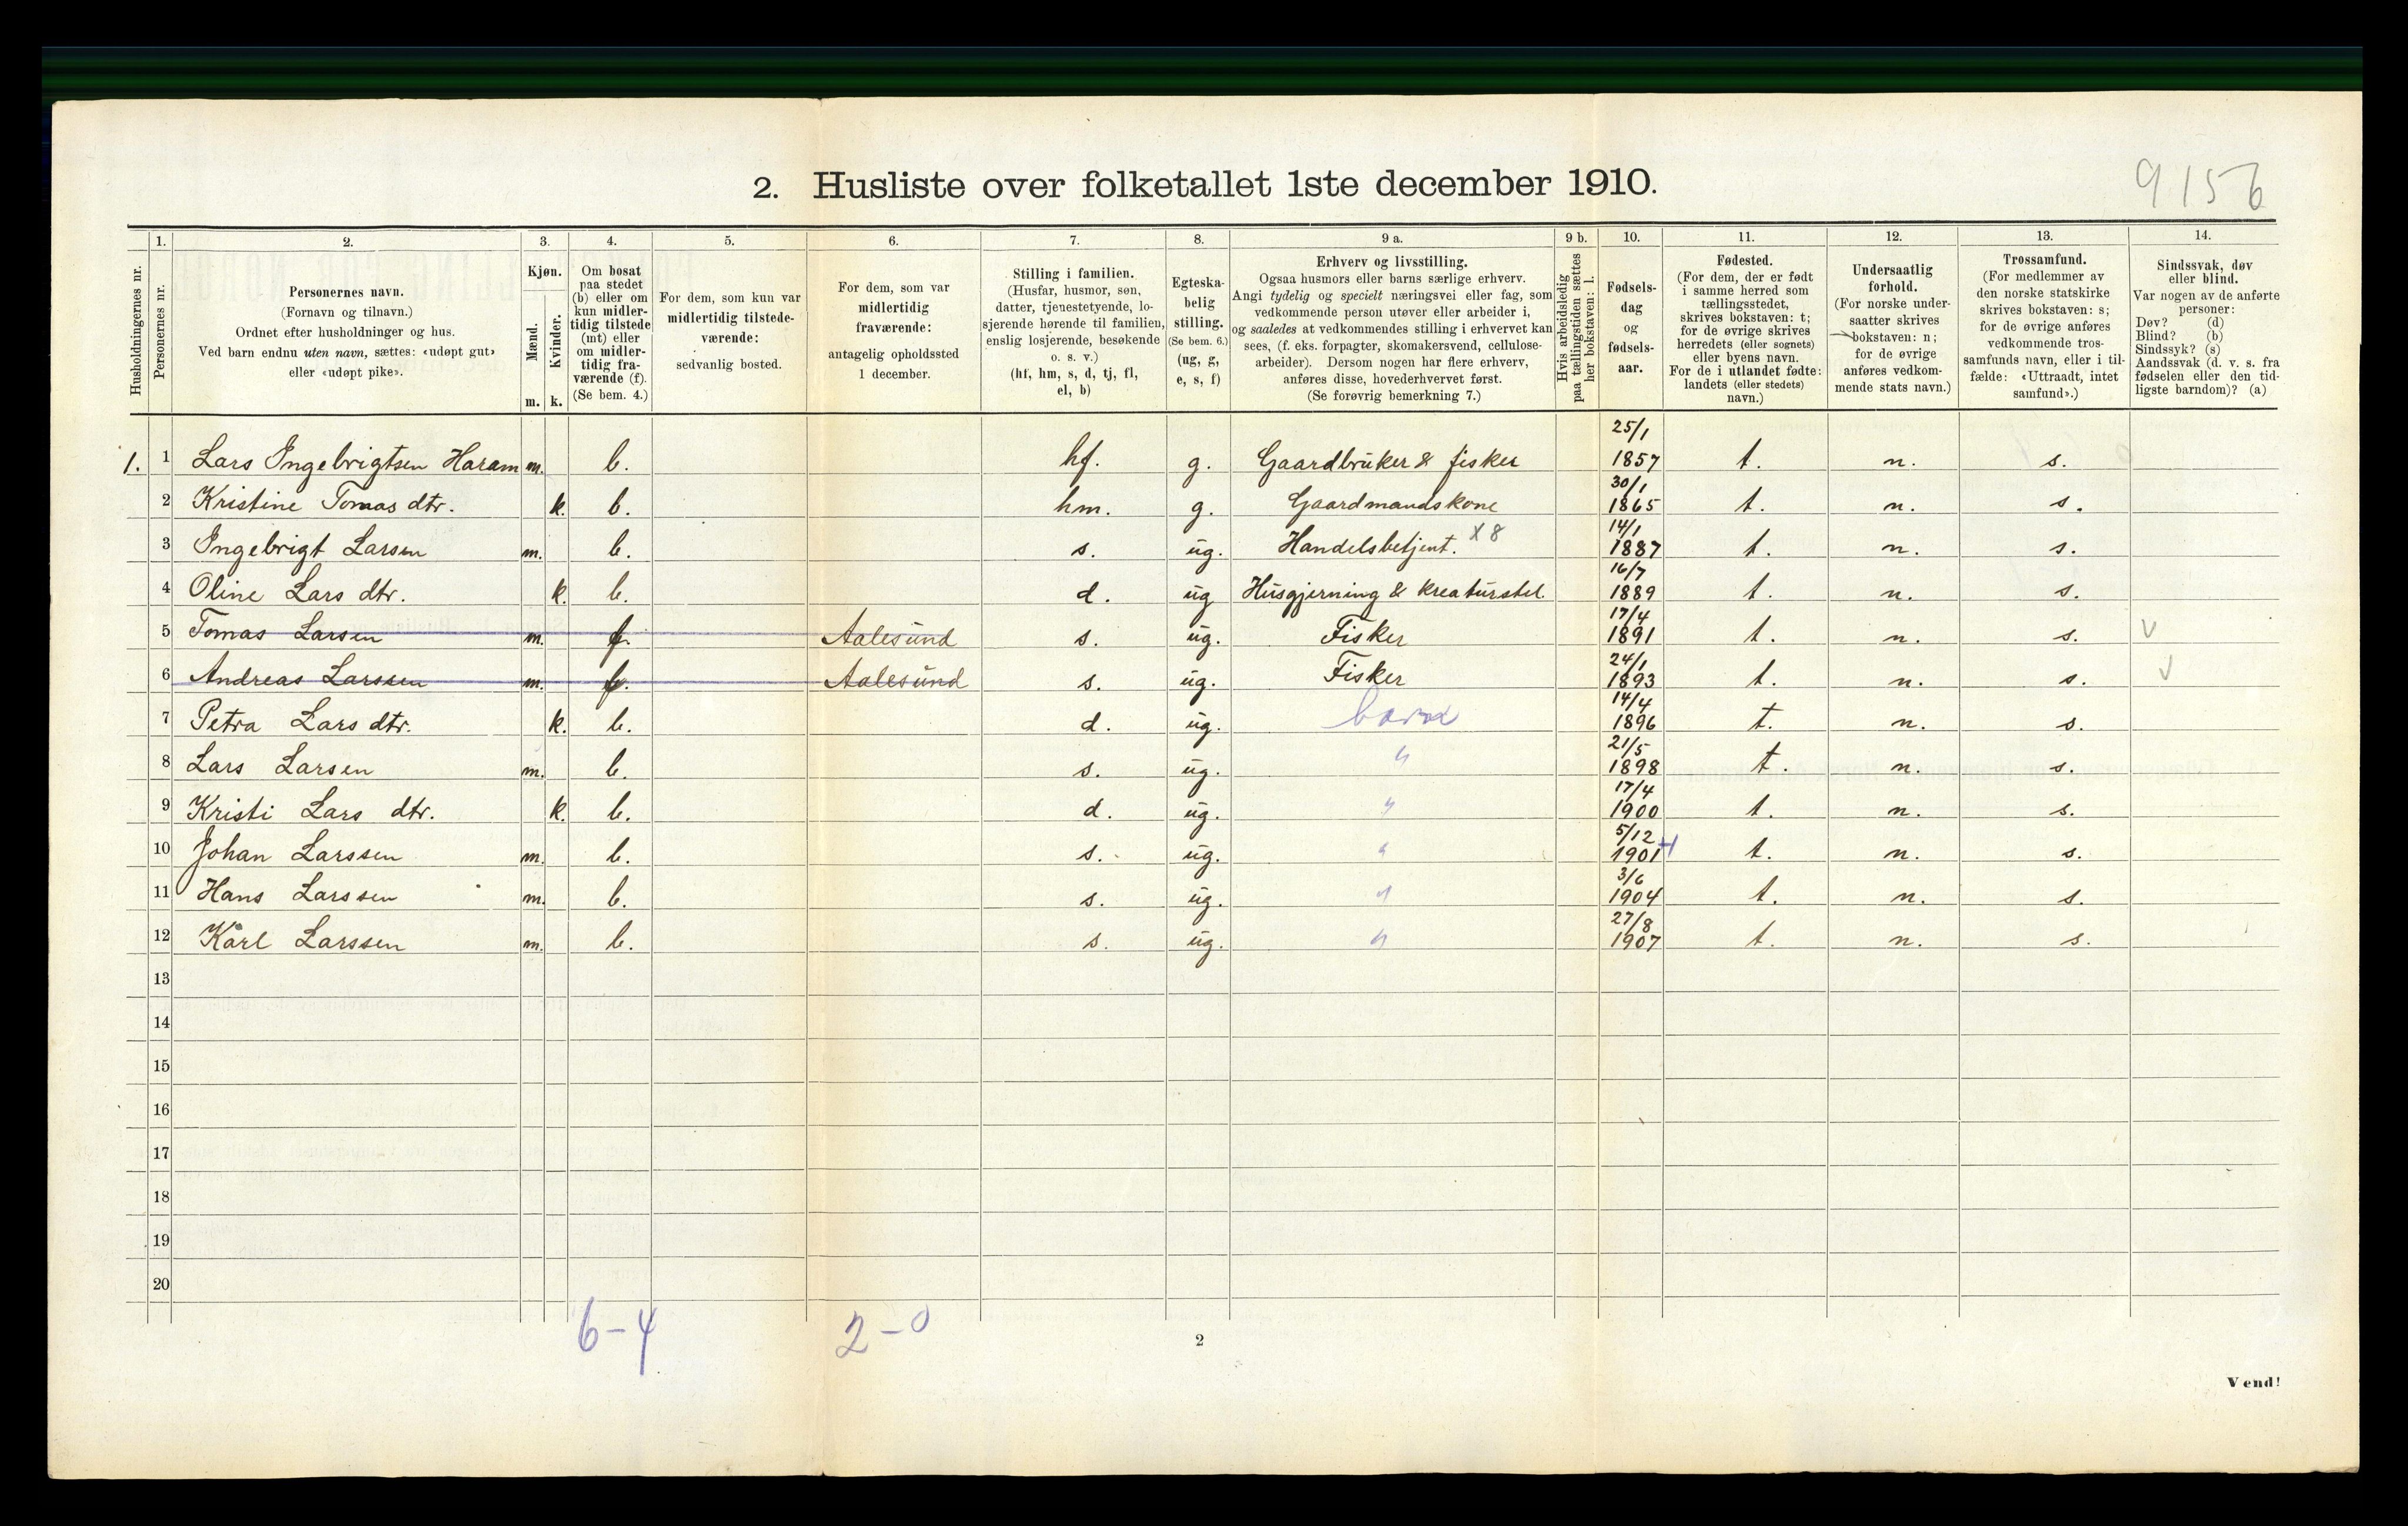 2. Husliste over folketallet 1ste december 1910.
9156
Husholdningernes nr.
1.
Personernes nr.
2.
Personernes navn.
(Fornavn og tilnavn.)
Ordnet efter husholdninger og hus.
Ved barn endnu uten navn, sættes: «udøpt gut»
eller «udøpt pike».
3.
Kjøn.
Mænd.
Kvinder.
m. k.
4.
Om bosat
paa stedet
(b) eller om
kun midler-
tidig tilstede
(mt) eller
om midler-
tidig fra-
værende (f).
(Se bem. 4.)
5.
For dem, som kun var
midlertidig tilstede-
værende:
sedvanlig bosted.
6.
For dem, som var
midlertidig
fraværende:
antagelig opholdssted
1 december.
7.
Stilling i familien.
(Husfar, husmor, søn,
datter, tjenestetyende, lo-
sjerende hørende til familien,
enslig losjerende, besøkende
o. s. v.)
(hf, hm, s, d, tj, fl,
el, b)
8.
Egteska-
belig
stilling.
(Se bem. 6.)
(ug, g,
e, s, f)
9 a.
Erhverv og livsstilling.
Ogsaa husmors eller barns særlige erhverv.
Angi tydelig og specielt næringsvei eller fag, som
vedkommende person utøver eller arbeider i,
og saaledes at vedkommendes stilling i erhvervet kan
sees, (f. eks. forpagter, skomakersvend, cellulose-
arbeider). Dersom nogen har flere erhverv,
anføres disse, hovederhvervet først.
(Se forøvrig bemerkning 7.)
9 b.
Hvis arbeidsledig
paa tællingstiden sættes
her bokstaven: l.
10.
Fødsels-
dag
og
fødsels-
aar.
11.
Fødested.
(For dem, der er født
i samme herred som
tællingsstedet,
skrives bokstaven: t;
for de øvrige skrives
herredets (eller sognets)
eller byens navn.
For de i utlandet fødte:
landets (eller stedets)
navn.)
12.
Undersaatlig
forhold.
(For norske under-
saatter skrives
bokstaven: n;
for de øvrige
anføres vedkom-
mende stats navn.)
13.
Trossamfund.
(For medlemmer av
den norske statskirke
skrives bokstaven: s;
for de øvrige anføres
vedkommende tros-
samfunds navn, eller i til-
fælde: «Uttraadt, intet
samfund».)
14.
Sindssvak, døv
eller blind.
Var nogen av de anførte
personer:
Døv? (d)
Blind? (b)
Sindssyk? (s)
Aandssvak (d. v. s. fra
fødselen eller den tid-
ligste barndom)? (a)
1. 1 Lars Ingebrigtsen Haram m. b. hf. g. Gaardbruker & fisker 25/1 1857 t. n. s.
2 Kristine Tomas dtr. k. b. hm. g. Gaardmandskone 30/1 1865 t. n. s.
3 Ingebrigt Larsen m. b. s. ug. Handelsbetjent. X8 14/1 1887 t. n. s.
4 Oline Lars dtr. k. b. d. ug Husgjerning & kreaturstel. 16/7 1889 t. n. s.
5 Tomas Larsen m. f. Aalesund s. ug. Fisker 17/4 1891 t. n. s. V
6 Andreas Larssen m. f. Aalesund s. ug. Fisker 24/1 1893 t. n. s. V
7 Petra Lars dtr. k. b. d. ug. barn 14/4 1896 t. n. s.
8 Lars Larsen m. b. s. ug. " 21/5 1898 t. n. s.
9 Kristi Lars dtr. k. b. d. ug. " 17/4 1900 t. n. s.
10 Johan Larssen m. b. s. ug. " 5/12 1901 t. n. s.
11 Hans Larssen m. b. s. ug. " 3/6 1904 t. n. s.
12 Karl Larssen m. b. s. ug. " 27/8 1907 t. n. s.
13
14
15
16
17
18
19
20
6-4 2-0
2
Vend!